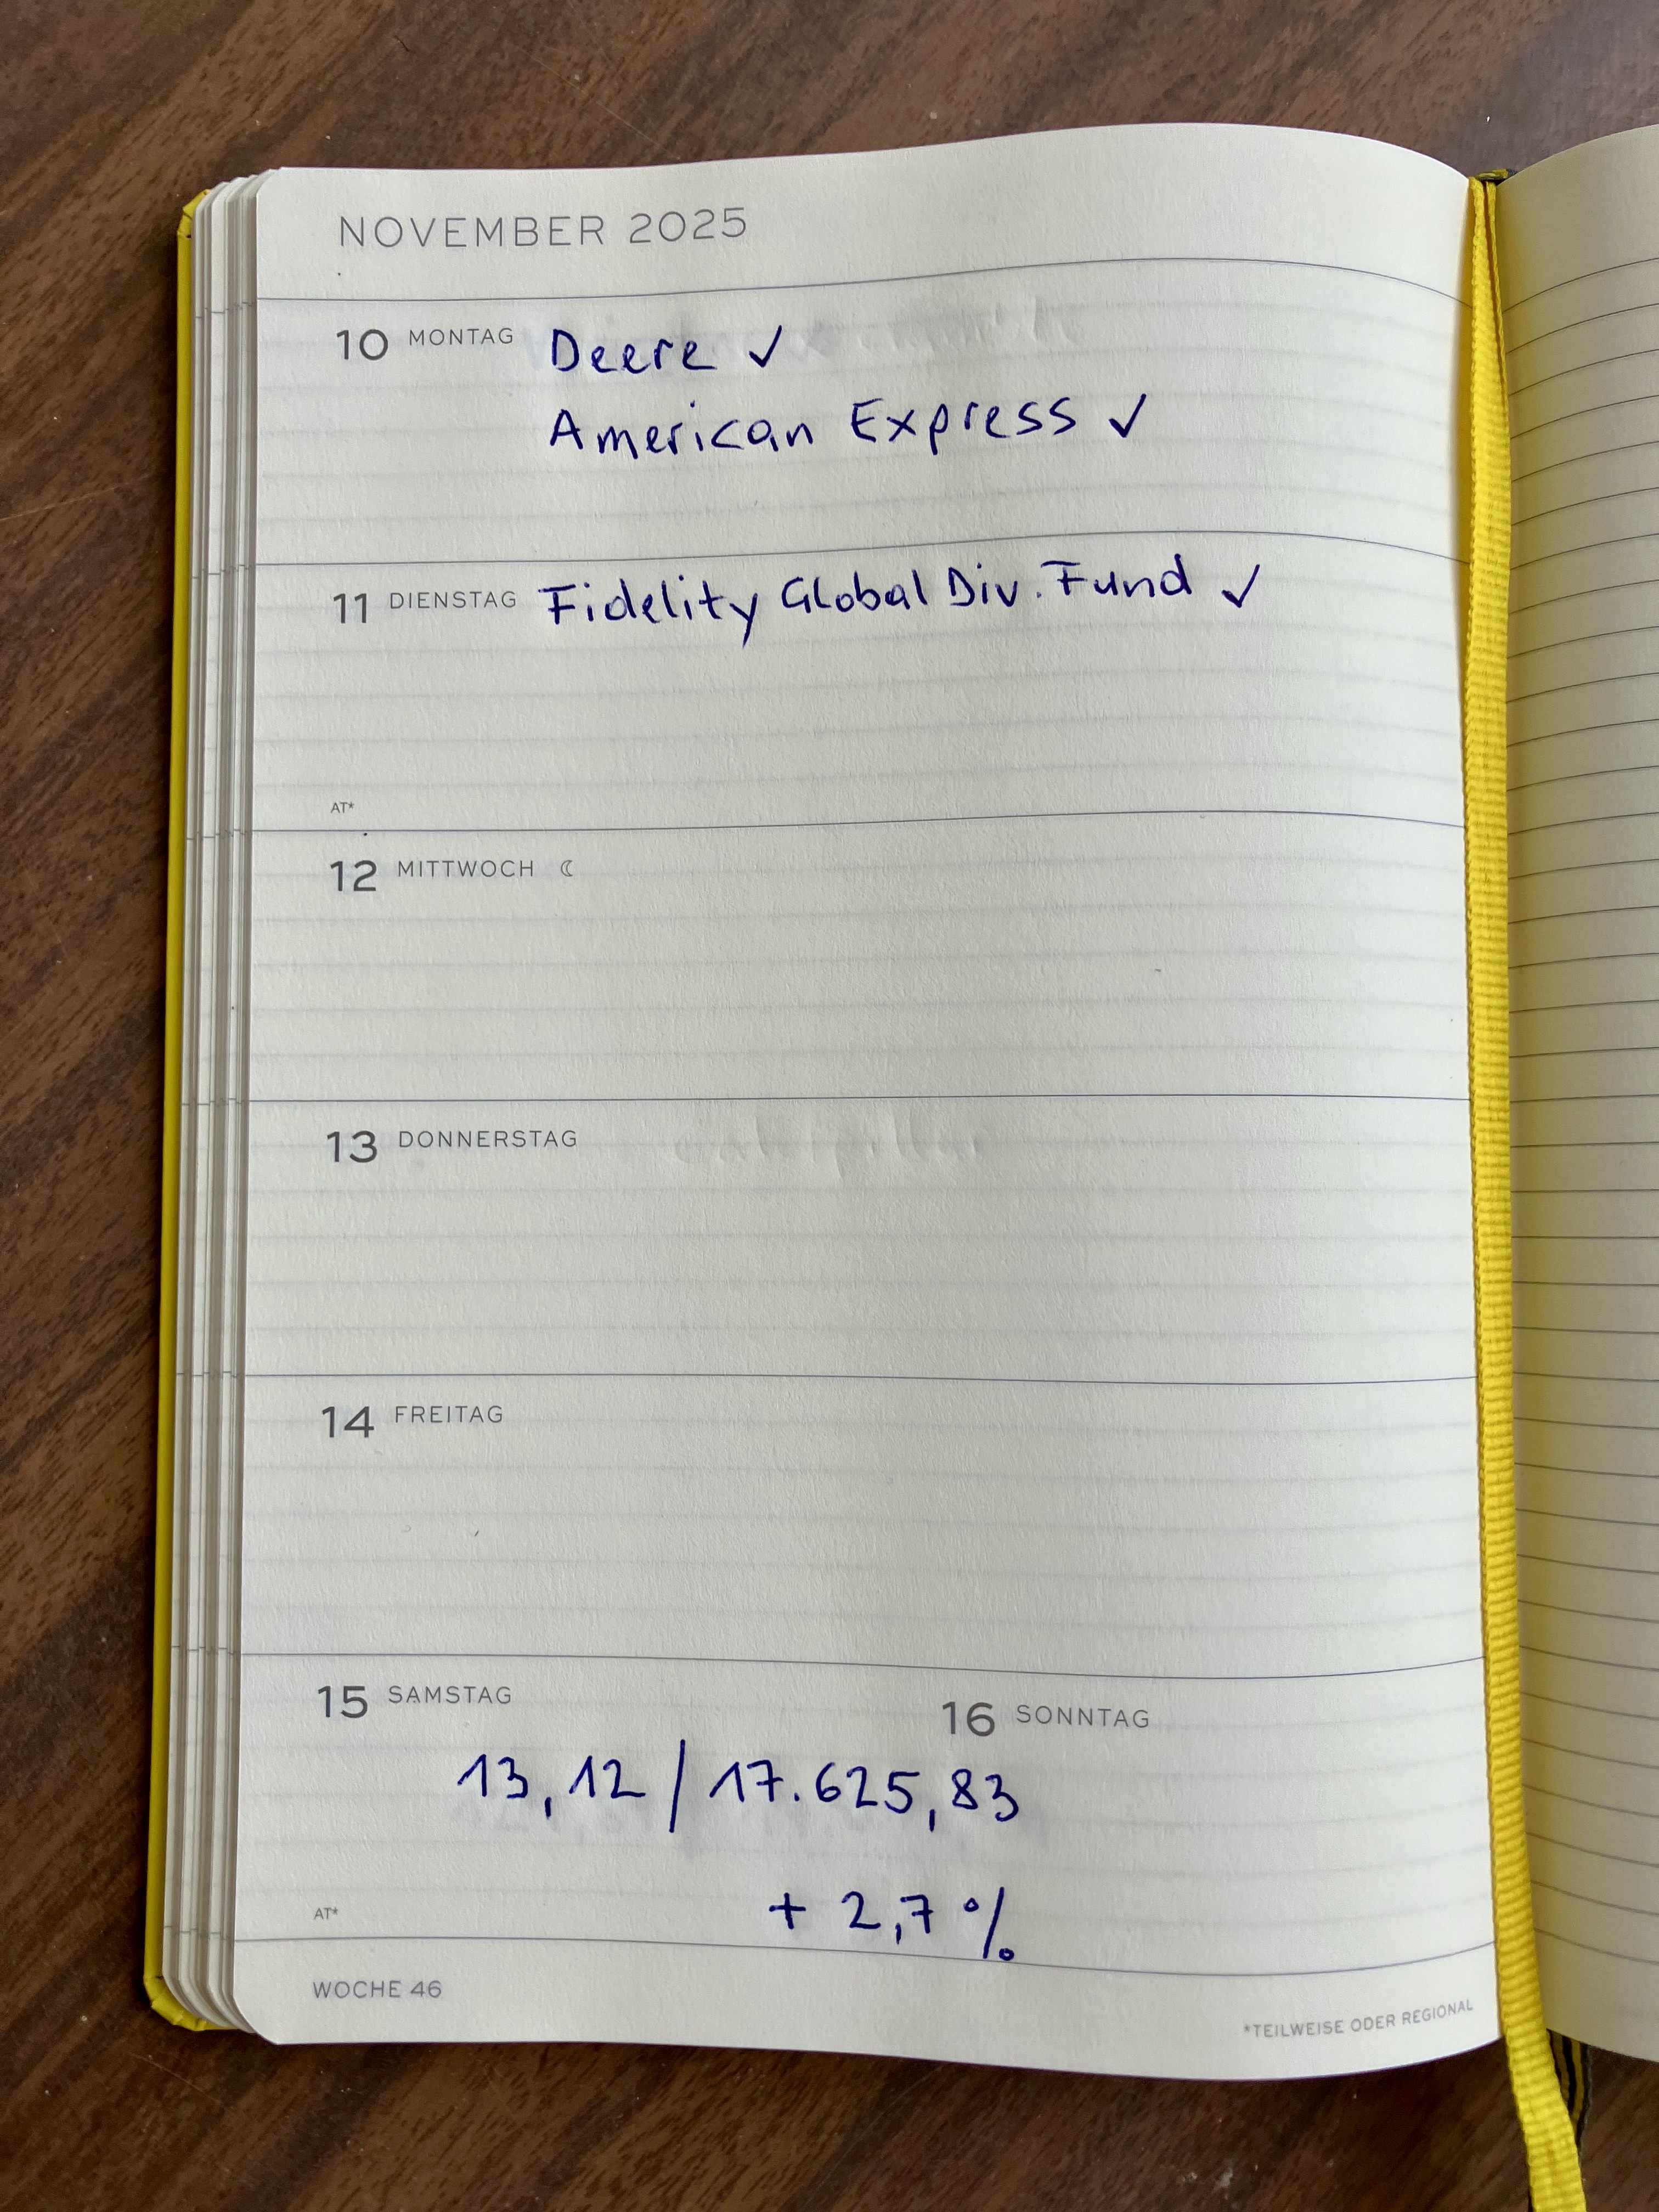 NOVEMBER 2025
10 MONTAG Deere ✓
American Express ✓
11 DIENSTAG Fidelity Global Div. Fund ✓
AT*
12 MITTWOCH ☾
13 DONNERSTAG
14 FREITAG
15 SAMSTAG
16 SONNTAG
13,12 / 17.625,83
+ 2,7 %
AT*
WOCHE 46
*TEILWEISE ODER REGIONAL